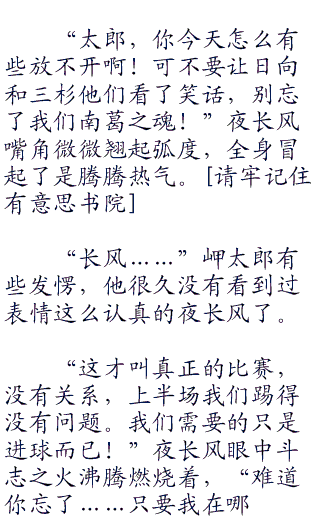 “太郎，你今天怎么有
些放不开啊！可不要让日向
和三杉他们看了笑话，别忘
了我们南葛之魂！”夜长风
嘴角微微翘起弧度，全身冒
起了是腾腾热气。[请牢记住
有意思书院]
“长风……”岬太郎有
些发愣，他很久没有看到过
表情这么认真的夜长风了。
“这才叫真正的比赛，
没有关系，上半场我们踢得
没有问题。我们需要的只是
进球而已！”夜长风眼中斗
志之火沸腾燃烧着，“难道
你忘了……只要我在哪